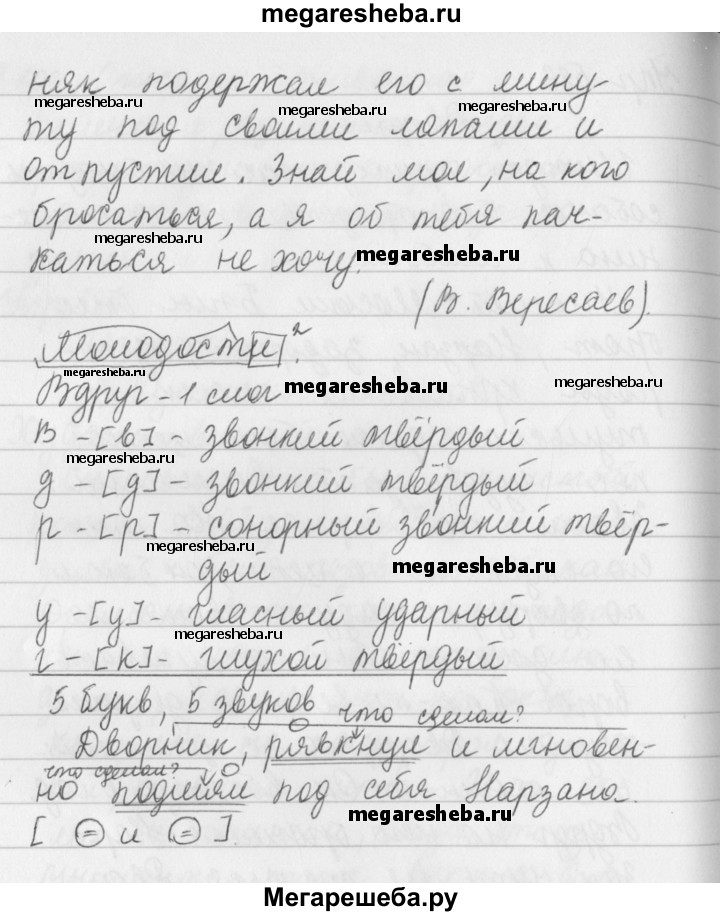 megaresheba.ru
няк подержал его с мину-
megaresheba.ru megaresheba.ru megaresheba.ru
ту под своими лапами и
отпустил. Знай мол, на кого
бросаться, а я об тебя пач-
megaresheba.ru
каться не хочу. megaresheba.ru
(В. Вересаев).
Молодости².
megaresheba.ru
Вдруг - 1 слог megaresheba.ru megaresheba.ru
в - [в] - звонкий твёрдый
megaresheba.ru
д - [д] - звонкий твёрдый
р - [р] - сонорный звонкий твёр-
megaresheba.ru
дый megaresheba.ru
у - [у] - гласный ударный
megaresheba.ru
г - [к] - глухой твёрдый
5 букв, 5 звуков
что сделал?
Дворник, рявкнул и мгновен-
что сделал?
но подмял под себя Нарзана.
megaresheba.ru
[ = и = ].
Мегарешеба.ру